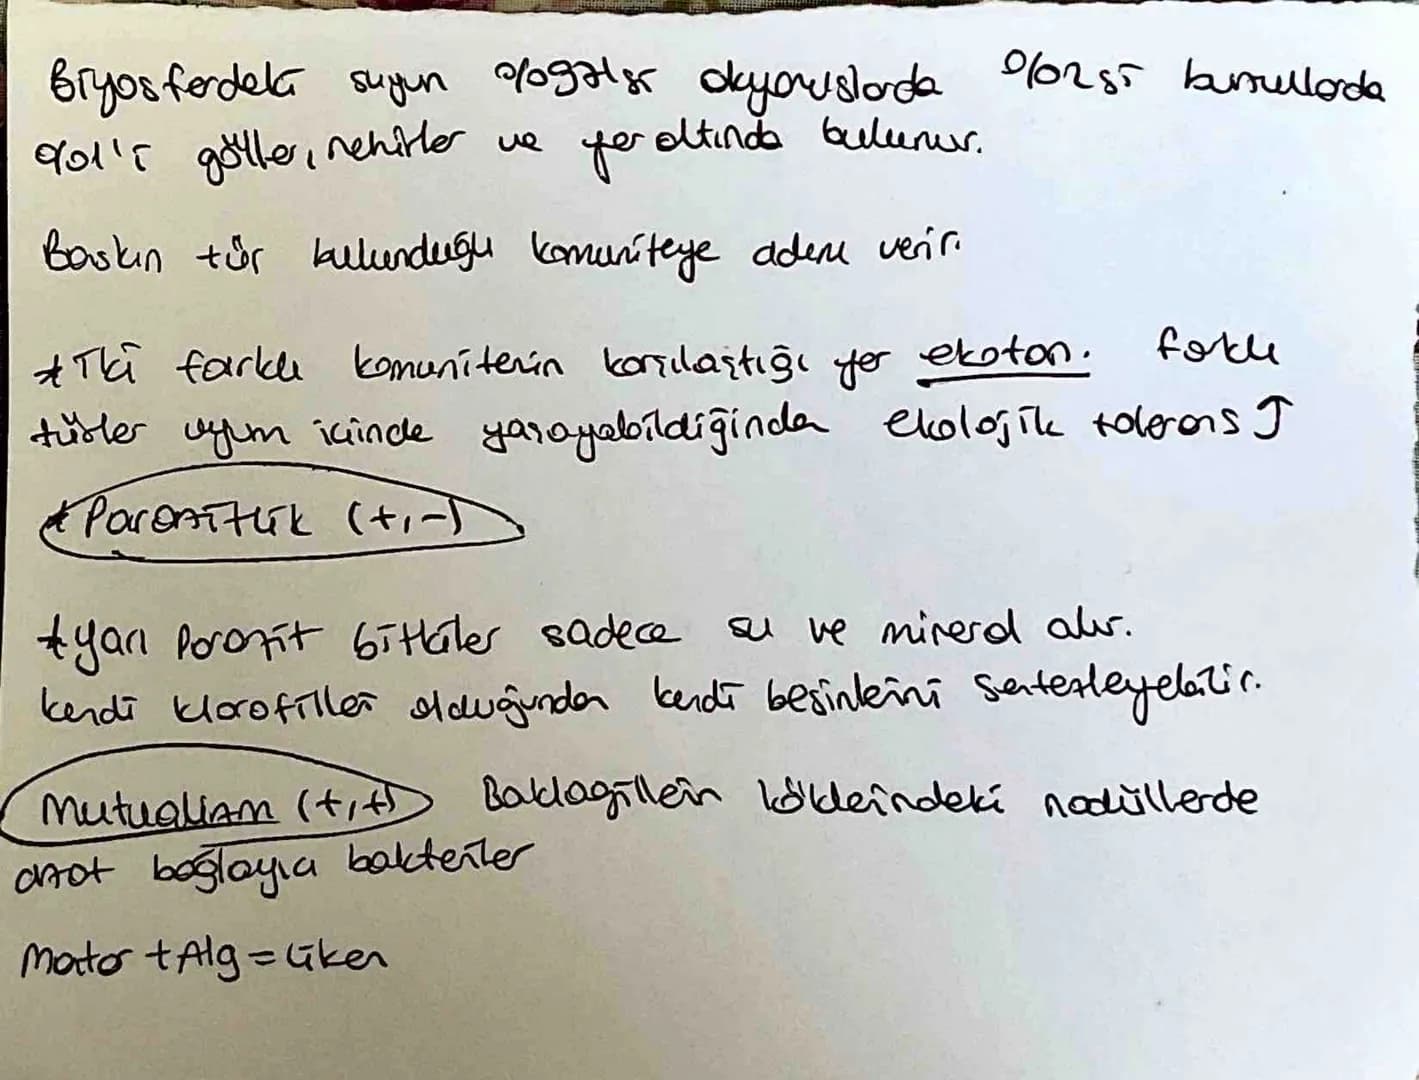 Biyosferdeki suyun %97'si okyonuslarda %2si buzullarda
%1'i göller, nehirler ve yer altında bulunur.
Baskın tür bulunduğu komuniteye adını verir.
* İki farklı komunitenin karşılaştığı yer ekoton. farklı
türler uyum içinde yaşayabildiğinden ekolojik tolerans ↑
* Parazitlik (+,-)
* yarı Parazit bitkiler sadece su ve mineral alır.
kendi klorofilleri olduğundan kendi besinlerini sentezleyebilir.
Mutualizm (+,+) Baklagillerin köklerindeki nodüllerde
azot bağlayıcı bakteriler
Mantar + Alg = Liken